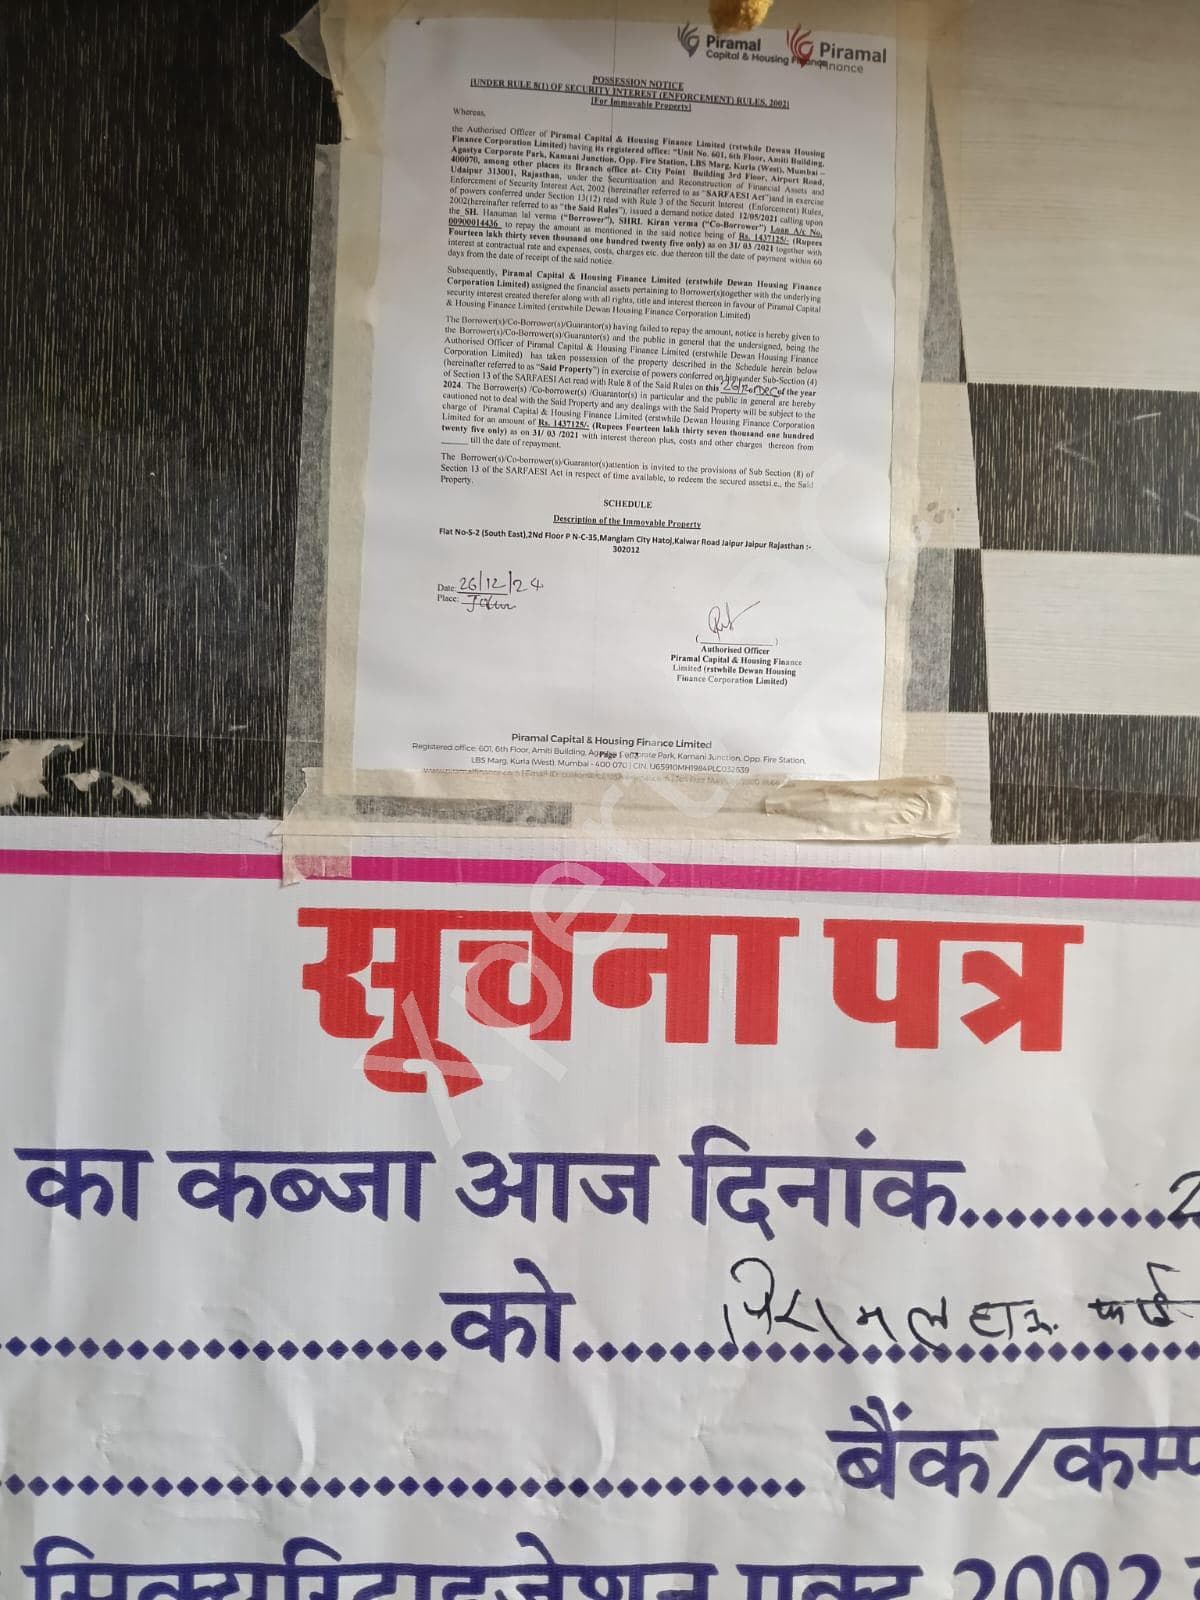 Piramal
Capital & Housing Finance
Piramal
Finance
POSSESSION NOTICE
[UNDER RULE 8(1) OF SECURITY INTEREST (ENFORCEMENT) RULES, 2002]
[For Immovable Property]
Whereas,
the Authorised Officer of Piramal Capital & Housing Finance Limited (rstwhile Dewan Housing
Finance Corporation Limited) having its registered office: "Unit No. 601, 6th Floor, Amiti Building,
Agastya Corporate Park, Kamani Junction, Opp. Fire Station, LBS Marg, Kurla (West), Mumbai –
400070, among other places its Branch office at- City Point Building 3rd Floor, Airport Road,
Udaipur 313001, Rajasthan, under the Securitisation and Reconstruction of Financial Assets and
Enforcement of Security Interest Act, 2002 (hereinafter referred to as "SARFAESI Act")and in exercise
of powers conferred under Section 13(12) read with Rule 3 of the Securit Interest (Enforcement) Rules,
2002(hereinafter referred to as "the Said Rules"), issued a demand notice dated 12/05/2021 calling upon
the SH. Hanuman lal verma ("Borrower"), SHRI. Kiran verma ("Co-Borrower") Loan A/c No.
00900014436 to repay the amount as mentioned in the said notice being of Rs. 1437125/- (Rupees
Fourteen lakh thirty seven thousand one hundred twenty five only) as on 31/ 03 /2021 together with
interest at contractual rate and expenses, costs, charges etc. due thereon till the date of payment within 60
days from the date of receipt of the said notice.
Subsequently, Piramal Capital & Housing Finance Limited (erstwhile Dewan Housing Finance
Corporation Limited) assigned the financial assets pertaining to Borrower(s)together with the underlying
security interest created therefor along with all rights, title and interest thereon in favour of Piramal Capital
& Housing Finance Limited (erstwhile Dewan Housing Finance Corporation Limited)
The Borrower(s)/Co-Borrower(s)/Guarantor(s) having failed to repay the amount, notice is hereby given to
the Borrower(s)/Co-Borrower(s)/Guarantor(s) and the public in general that the undersigned, being the
Authorised Officer of Piramal Capital & Housing Finance Limited (erstwhile Dewan Housing Finance
Corporation Limited) has taken possession of the property described in the Schedule herein below
(hereinafter referred to as "Said Property") in exercise of powers conferred on him under Sub-Section (4)
of Section 13 of the SARFAESI Act read with Rule 8 of the Said Rules on this 26th of Dec of the year
2024. The Borrower(s) /Co-borrower(s) /Guarantor(s) in particular and the public in general are hereby
cautioned not to deal with the Said Property and any dealings with the Said Property will be subject to the
charge of Piramal Capital & Housing Finance Limited (erstwhile Dewan Housing Finance Corporation
Limited for an amount of Rs. 1437125/- (Rupees Fourteen lakh thirty seven thousand one hundred
twenty five only) as on 31/ 03 /2021 with interest thereon plus, costs and other charges thereon from
______ till the date of repayment.
The Borrower(s)/Co-borrower(s)/Guarantor(s)attention is invited to the provisions of Sub Section (8) of
Section 13 of the SARFAESI Act in respect of time available, to redeem the secured assetsi.e., the Said
Property.
SCHEDULE
Description of the Immovable Property
Flat No-S-2 (South East),2Nd Floor P N-C-35,Manglam City Hatoj,Kalwar Road Jaipur Jaipur Rajasthan :-
302012
Date: 26/12/24
Place:
Authorised Officer
Piramal Capital & Housing Finance
Limited (rstwhile Dewan Housing
Finance Corporation Limited)
Piramal Capital & Housing Finance Limited
Registered office: 601, 6th Floor, Amiti Building, Agastya Corporate Park, Kamani Junction, Opp. Fire Station,
LBS Marg, Kurla (West), Mumbai - 400 070 | CIN: U65910MH1984PLC032639
सूचना पत्र
का कब्जा आज दिनांक.........2
को पिरामल हाऊ. फाई
बैंक/कम्प
सिक्यूरिटाइजेशन एक्ट 2002